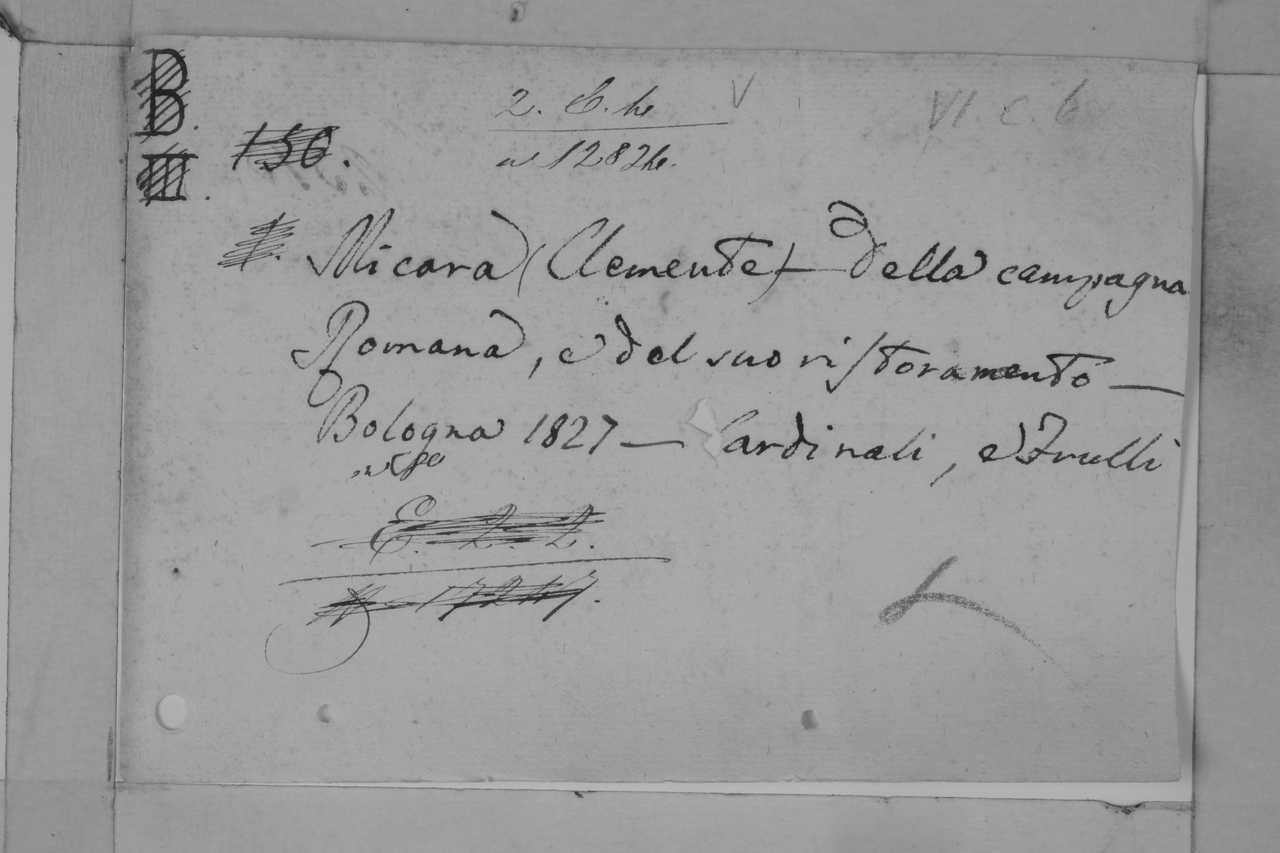 B.
III.
156.
2. E. he
V
VI. C. 6
n 1282
Micara (Clemente) — Della campagna
Romana, e del suo ristoramento —
Bologna 1827 — Cardinali, e Frulli
E. 2. 2.
17247.